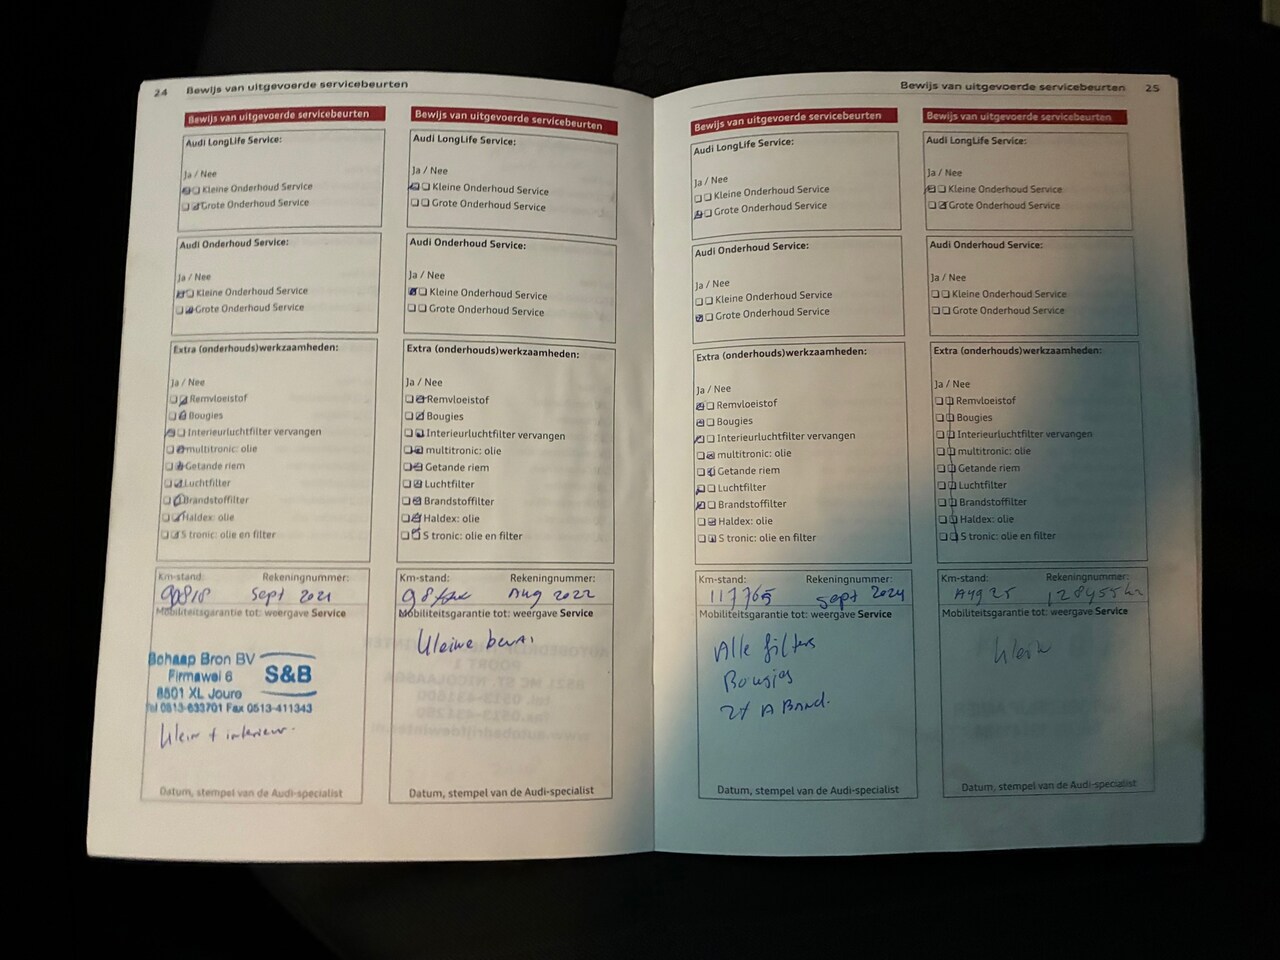 24 Bewijs van uitgevoerde servicebeurten
Bewijs van uitgevoerde servicebeurten
Audi LongLife Service:
Ja / Nee
Kleine Onderhoud Service
Grote Onderhoud Service
Audi Onderhoud Service:
Ja / Nee
Kleine Onderhoud Service
Grote Onderhoud Service
Extra (onderhouds)werkzaamheden:
Ja / Nee
Remvloeistof
Bougies
Interieurluchtfilter vervangen
multitronic: olie
Getande riem
Luchtfilter
Brandstoffilter
Haldex: olie
S tronic: olie en filter
Km-stand: Rekeningnummer:
90818 Sept 2021
Mobiliteitsgarantie tot: weergave Service
Bohaap Bron BV
S&B
Firmawei 6
8501 XL Joure
Tel 0513-633701 Fax 0513-411343
klein + interieur.
Datum, stempel van de Audi-specialist
Bewijs van uitgevoerde servicebeurten
Audi LongLife Service:
Ja / Nee
Kleine Onderhoud Service
Grote Onderhoud Service
Audi Onderhoud Service:
Ja / Nee
Kleine Onderhoud Service
Grote Onderhoud Service
Extra (onderhouds)werkzaamheden:
Ja / Nee
Remvloeistof
Bougies
Interieurluchtfilter vervangen
multitronic: olie
Getande riem
Luchtfilter
Brandstoffilter
Haldex: olie
S tronic: olie en filter
Km-stand: Rekeningnummer:
Aug 2022
Mobiliteitsgarantie tot: weergave Service
kleine
Datum, stempel van de Audi-specialist
Bewijs van uitgevoerde servicebeurten 25
Bewijs van uitgevoerde servicebeurten
Audi LongLife Service:
Ja / Nee
Kleine Onderhoud Service
Grote Onderhoud Service
Audi Onderhoud Service:
Ja / Nee
Kleine Onderhoud Service
Grote Onderhoud Service
Extra (onderhouds)werkzaamheden:
Ja / Nee
Remvloeistof
Bougies
Interieurluchtfilter vervangen
multitronic: olie
Getande riem
Luchtfilter
Brandstoffilter
Haldex: olie
S tronic: olie en filter
Km-stand: Rekeningnummer:
117765 Sept 2024
Mobiliteitsgarantie tot: weergave Service
Alle filters
Bougies
2x A Band.
Datum, stempel van de Audi-specialist
Bewijs van uitgevoerde servicebeurten
Audi LongLife Service:
Ja / Nee
Kleine Onderhoud Service
Grote Onderhoud Service
Audi Onderhoud Service:
Ja / Nee
Kleine Onderhoud Service
Grote Onderhoud Service
Extra (onderhouds)werkzaamheden:
Ja / Nee
Remvloeistof
Bougies
Interieurluchtfilter vervangen
multitronic: olie
Getande riem
Luchtfilter
Brandstoffilter
Haldex: olie
S tronic: olie en filter
Km-stand: Rekeningnummer:
Aug 25 128455km
Mobiliteitsgarantie tot: weergave Service
klein
Datum, stempel van de Audi-specialist